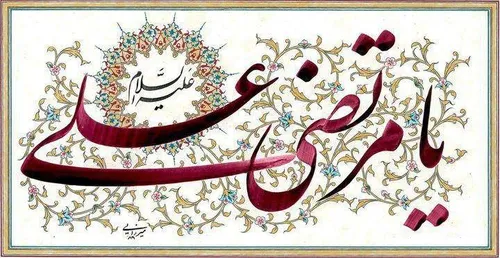 یا مرتضی علی
علیه السلام